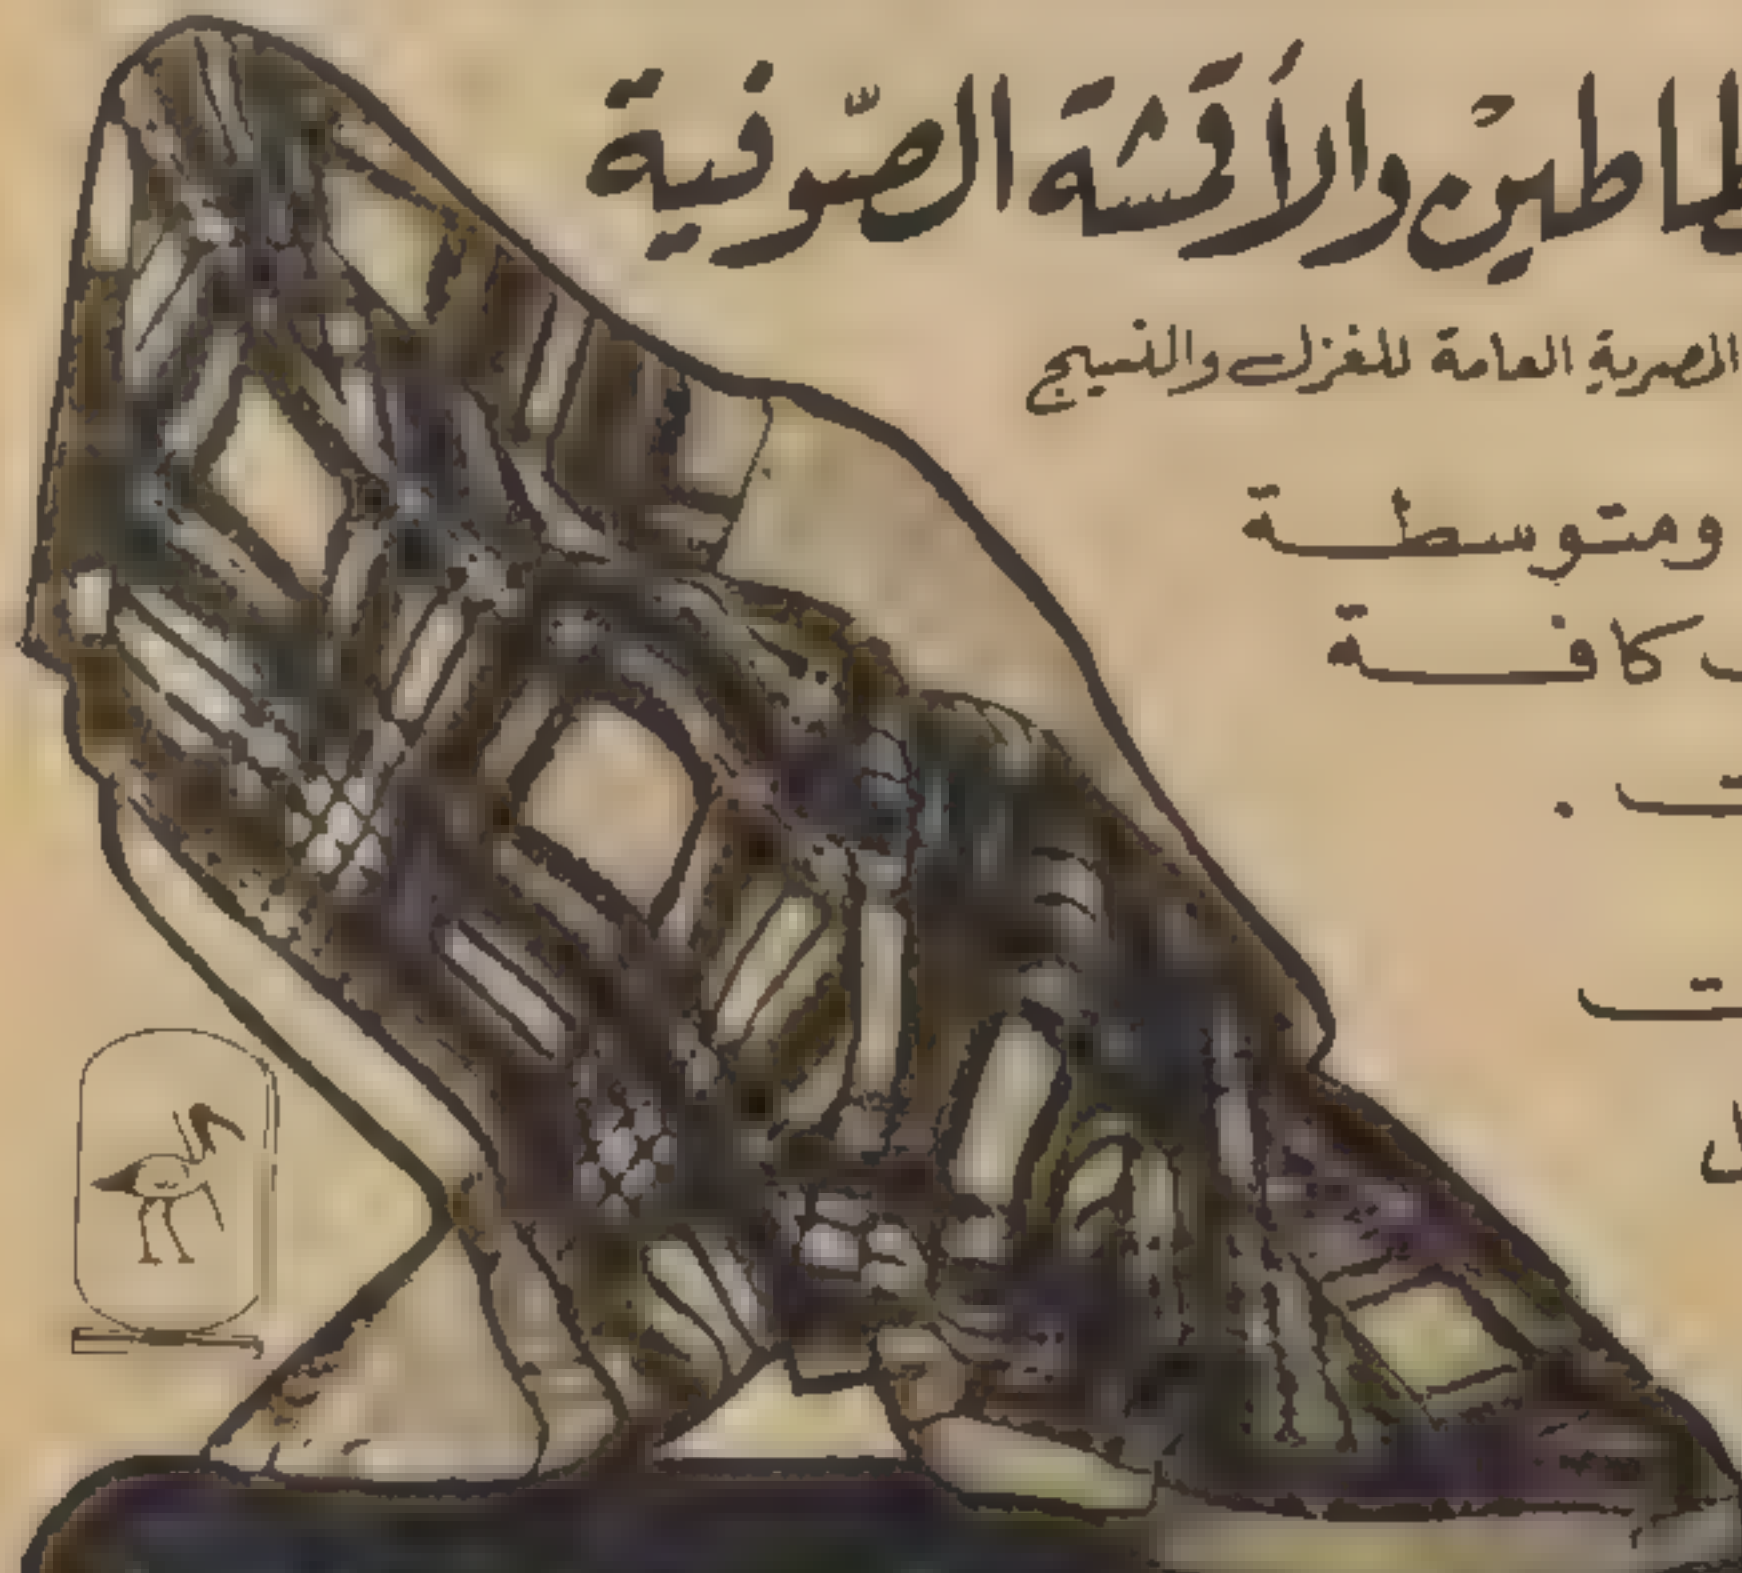 طاطين والأقمشة الصّوفية
المصرية العامة للغزل والنسيج
ومتوسطة
كافة